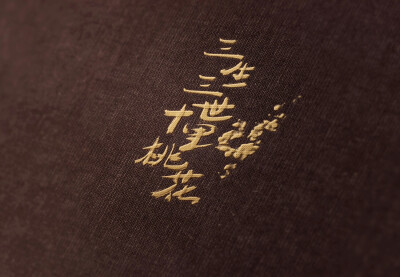 三生
三世
十里
桃花